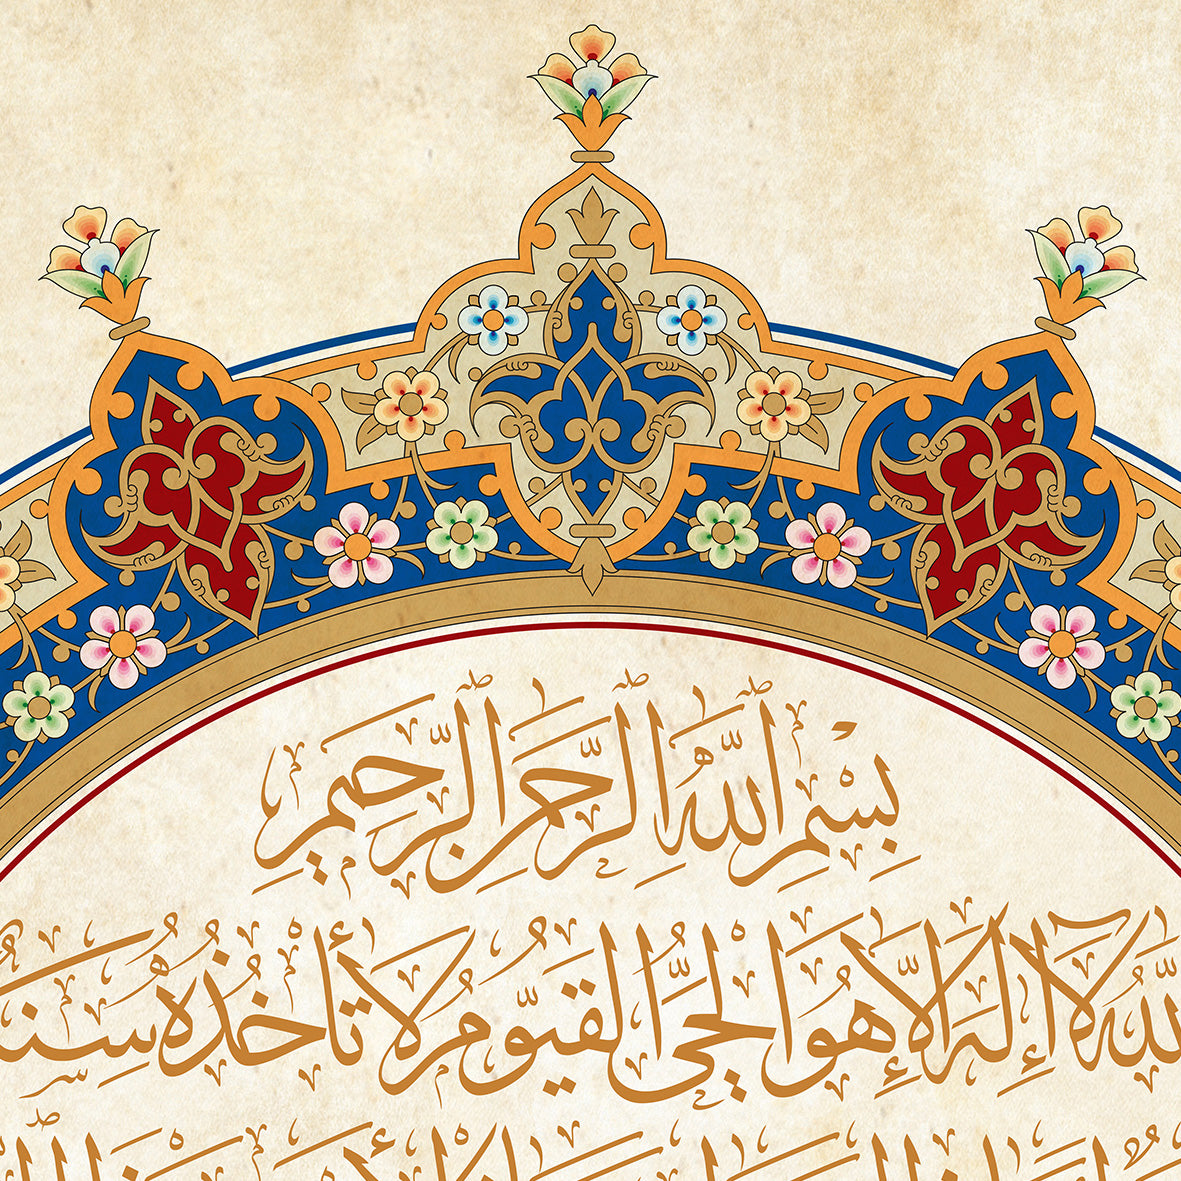 بِسْمِ اللَّهِ الرَّحْمَٰنِ الرَّحِيمِ
اللَّهُ لَا إِلَٰهَ إِلَّا هُوَ الْحَيُّ الْقَيُّومُ لَا تَأْخُذُهُ سِنَةٌ